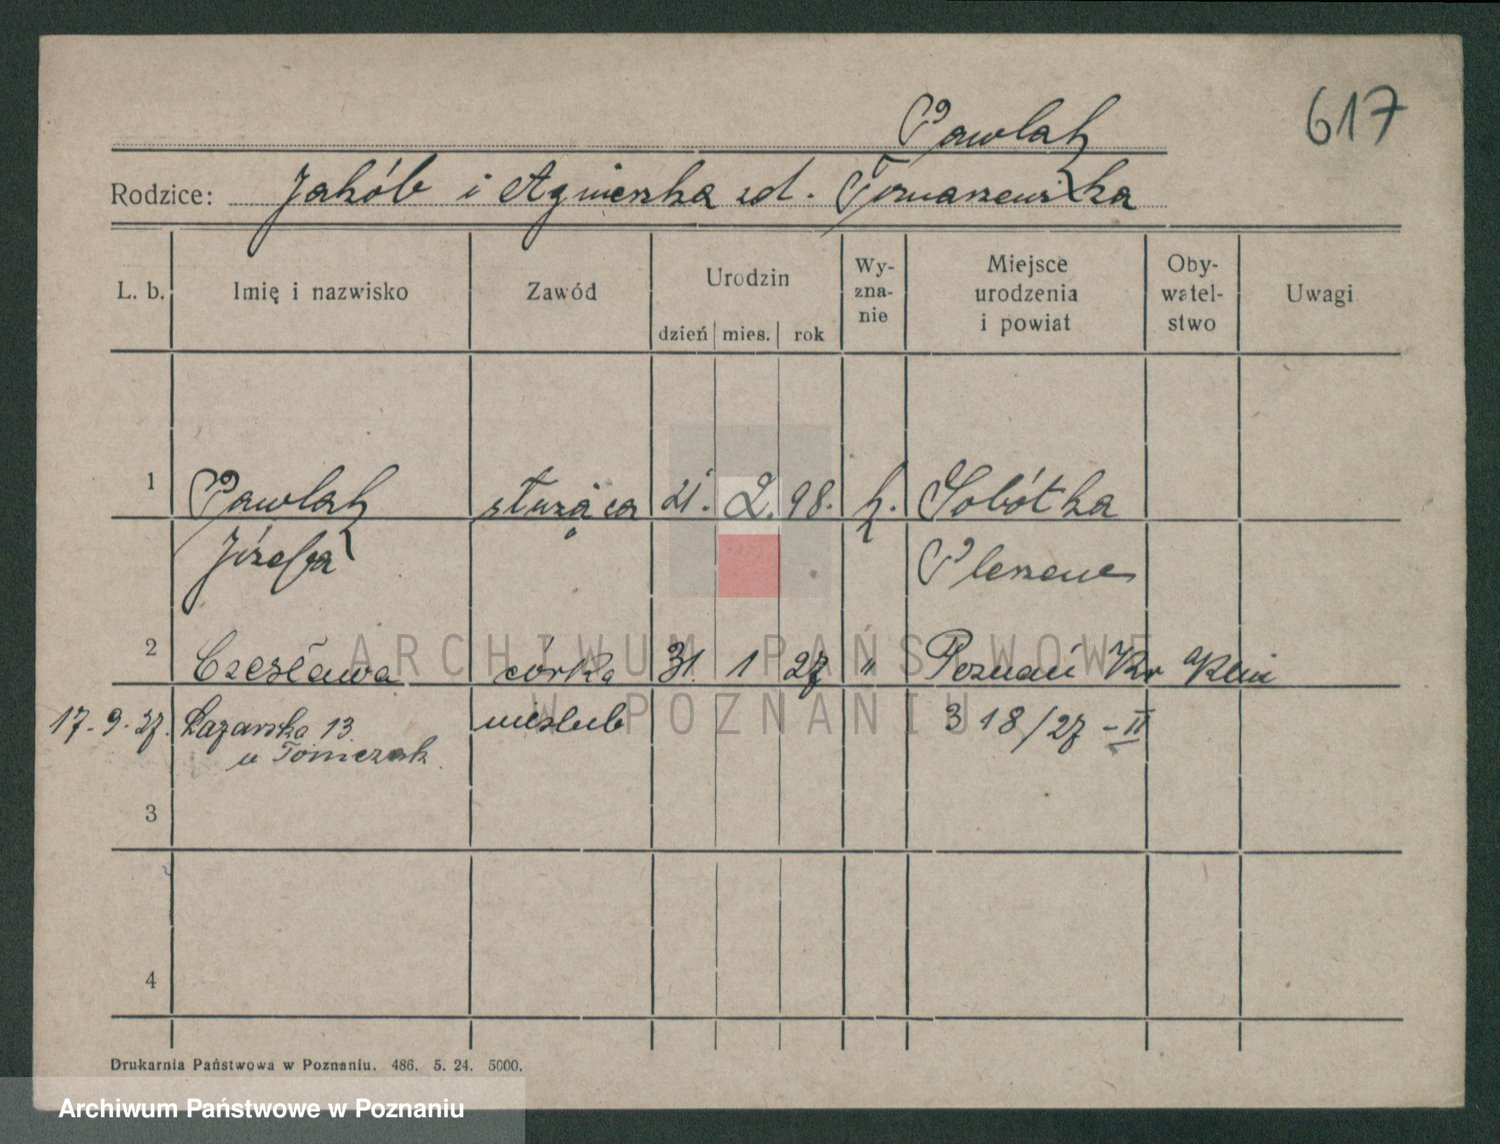 617
Pawlak
Rodzice: Jakób i Agnieszka zd. Tomaszewska
L. b. Imię i nazwisko Zawód Urodzin dzień mies. rok Wy-zna-nie Miejsce urodzenia i powiat Oby-watel-stwo Uwagi
1 Pawlak służąca 21. 2. 98. k. Sobótka
Józefa Pleszew
2 Czesława córka 31. 1 27 " Poznań Kr
17. 9. 27. Łazarska 13 nieślub 318/27 - II
u Tomczak
3
4
Drukarnia Państwowa w Poznaniu. 486. 5. 24. 5000.
ARCHIWUM PAŃSTWOWE
W POZNANIU
Archiwum Państwowe w Poznaniu